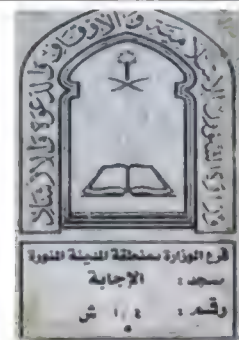 وزارة الشؤون الإسلامية والأوقاف والدعوة والإرشاد
فرع الوزارة بمنطقة المدينة المنورة
مسجد : الإجابة
رقم : ٤ / ١ ش